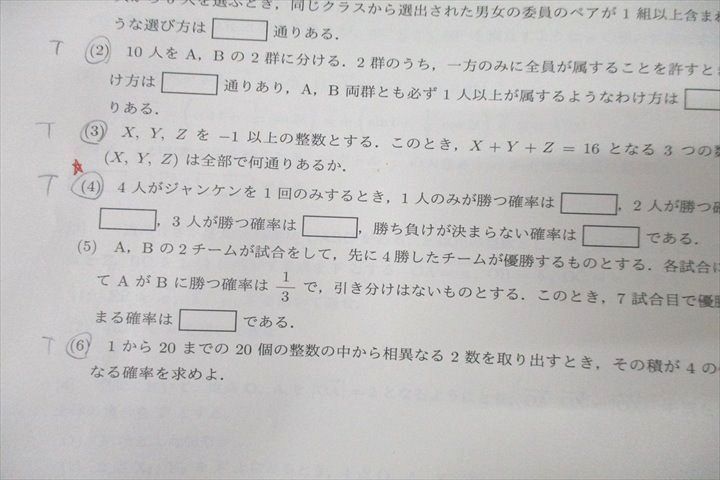 人から6人を選ぶとき，同じクラスから選出された男女の委員のペアが1組以上含まれ
うな選び方は 通りある．
T (2) 10人をA，Bの2群に分ける．2群のうち，一方のみに全員が属することを許すとき
け方は 通りあり，A，B両群とも必ず1人以上が属するようなわけ方は
りある．
T (3) X, Y, Zを−1以上の整数とする．このとき，X+Y+Z=16となる3つの数
(X, Y, Z)は全部で何通りあるか．
T (4) 4人がジャンケンを1回のみするとき，1人のみが勝つ確率は ，2人が勝つ確
，3人が勝つ確率は ，勝ち負けが決まらない確率は である．
(5) A，Bの2チームが試合をして，先に4勝したチームが優勝するものとする．各試合に
てAがBに勝つ確率は 1/3 で，引き分けはないものとする．このとき，7試合目で優勝
まる確率は である．
T (6) 1から20までの20個の整数の中から相異なる2数を取り出すとき，その積が4の
なる確率を求めよ．